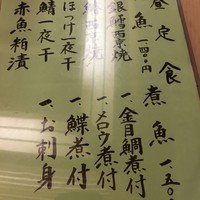 昼定食
煮魚 一、五〇
一、金目鯛煮付
一、メロウ煮付
一、鰈煮付
一、お刺身
魚 一四〇〇円
銀鱈西京焼
ほっけ一夜干
鯖一夜干
赤魚粕漬